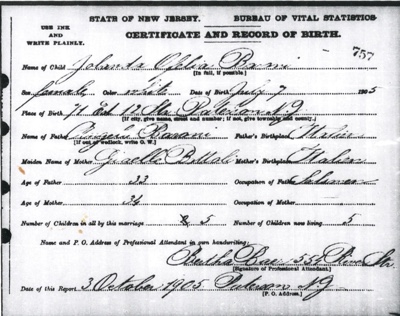 STATE OF NEW JERSEY. BUREAU OF VITAL STATISTICS
USE INK AND WRITE PLAINLY.
CERTIFICATE AND RECORD OF BIRTH.
757
Name of Child Yolanda Ofelia
[In full, if possible.]
Sex female Color white Date of Birth July 7 1905
Place of Birth 71 East 12 Str Paterson N.J
[If city, give name, street and number; if not, give township and county.]
Name of Father Father's Birthplace Italien
[If out of wedlock, write O. W.]
Maiden Name of Mother Mother's Birthplace Italien
Age of Father 33 Occupation of Father
Age of Mother 34 Occupation of Mother
Number of Children in all by this marriage 5 Number of Children now living 5
Name and P. O. Address of Professional Attendant in own handwriting
Bertha Str.
[Signature of Professional Attendant.]
Date of this Report 3 October 1905 Paterson N J
[P. O. Address.]